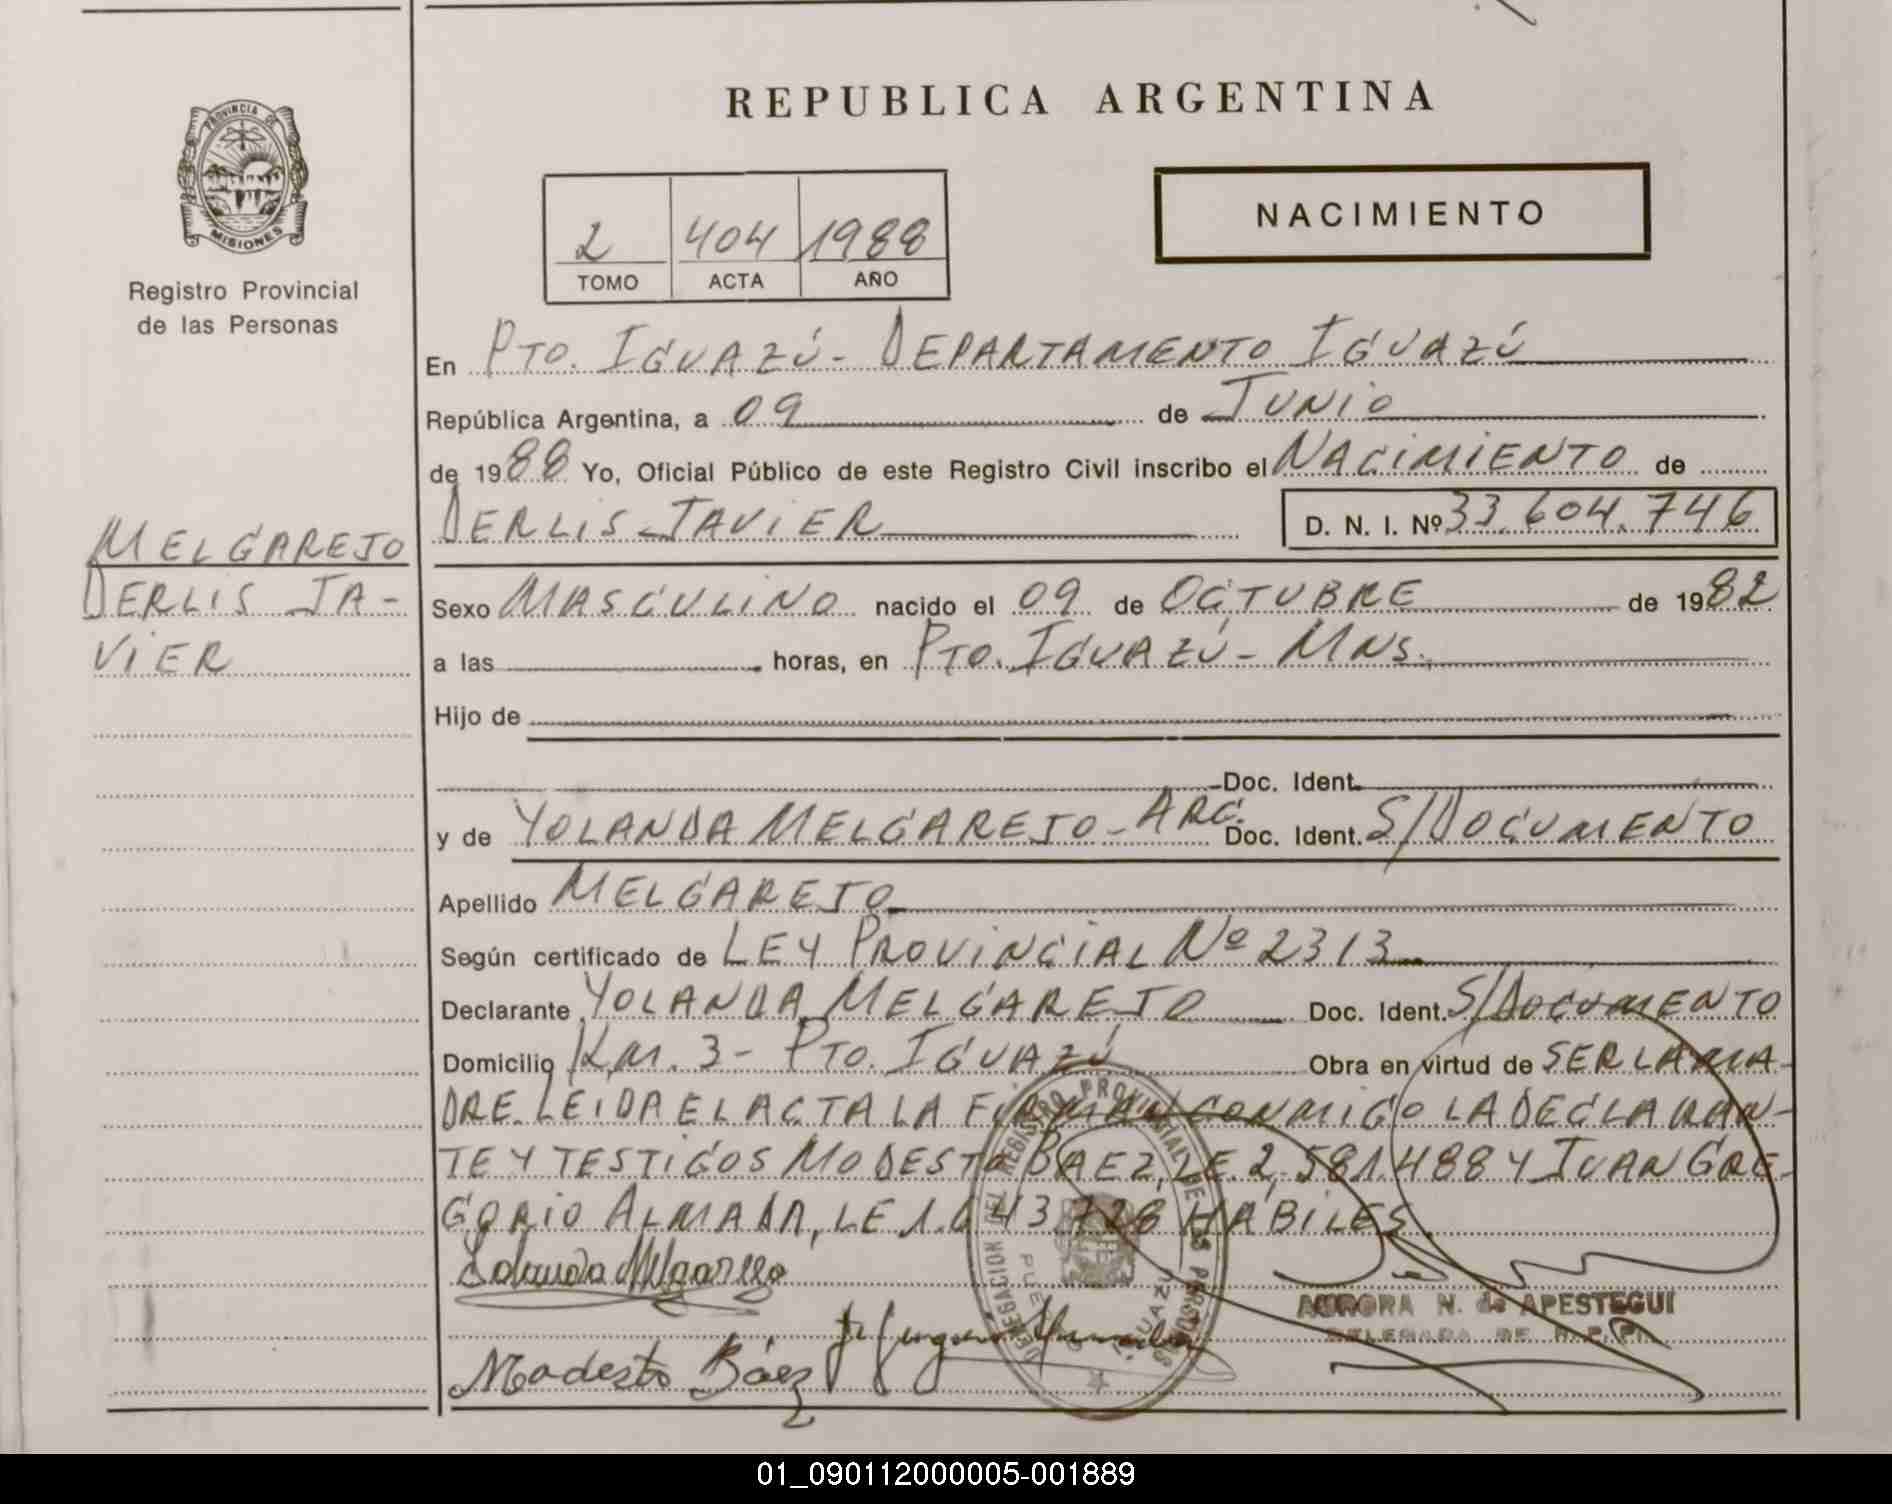 REPUBLICA ARGENTINA
PROVINCIA DE
MISIONES
Registro Provincial
de las Personas
2 404 1988
TOMO ACTA AÑO
NACIMIENTO
En PTO. IGUAZÚ - DEPARTAMENTO IGUAZÚ
República Argentina, a 09 de JUNIO
de 1988 Yo, Oficial Público de este Registro Civil inscribo el NACIMIENTO de
DERLIS JAVIER D. N. I. Nº 33.604.746
MELGAREJO
DERLIS JA-
VIER
Sexo MASCULINO nacido el 09 de OCTUBRE de 1982
a las horas, en PTO. IGUAZÚ - MNS.
Hijo de
Doc. Ident.
y de YOLANDA MELGAREJO - ARG. Doc. Ident. S/DOCUMENTO
Apellido MELGAREJO
Según certificado de LEY PROVINCIAL Nº 2313
Declarante YOLANDA MELGAREJO Doc. Ident. S/DOCUMENTO
Domicilio KM. 3 - PTO. IGUAZÚ Obra en virtud de SER LA MA-
DRE. LEIDA EL ACTA LA FIRMAN CONMIGO LA DECLARAN-
TE Y TESTIGOS MODESTO BAEZ, LE. 2.581.488 Y JUAN GRE-
GORIO ALMADA, LE 1.643.728 HABILES
Yolanda Melgarejo
AURORA N. de APESTEGUI
DELEGADA DE R. P. P.
Modesto Báez
DELEGACION DEL REGISTRO PROVINCIAL DE LAS PERSONAS
IGUAZU
01_090112000005-001889